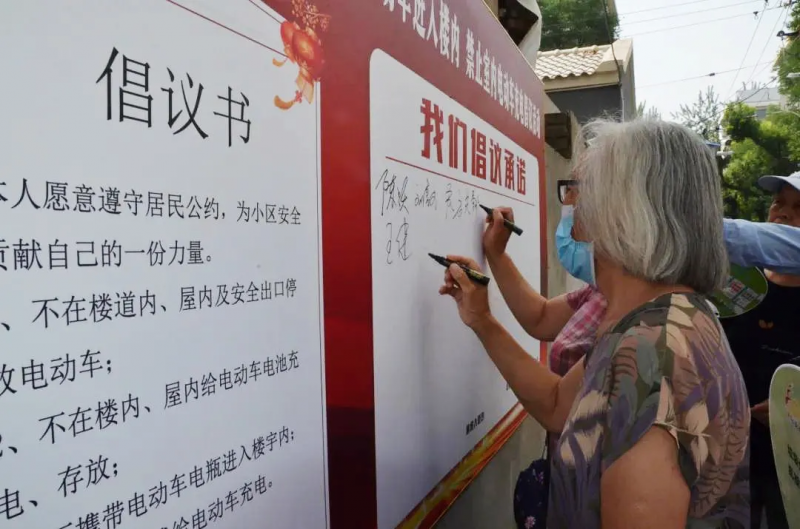 倡议书
本人愿意遵守居民公约，为小区安全
贡献自己的一份力量。
、不在楼道内、屋内及安全出口停
放电动车；
、不在楼内、屋内给电动车电池充
电、存放；
携带电动车电瓶进入楼宇内；
给电动车充电。
动车进入楼内 禁止室内电动车充电
我们倡议承诺
王建